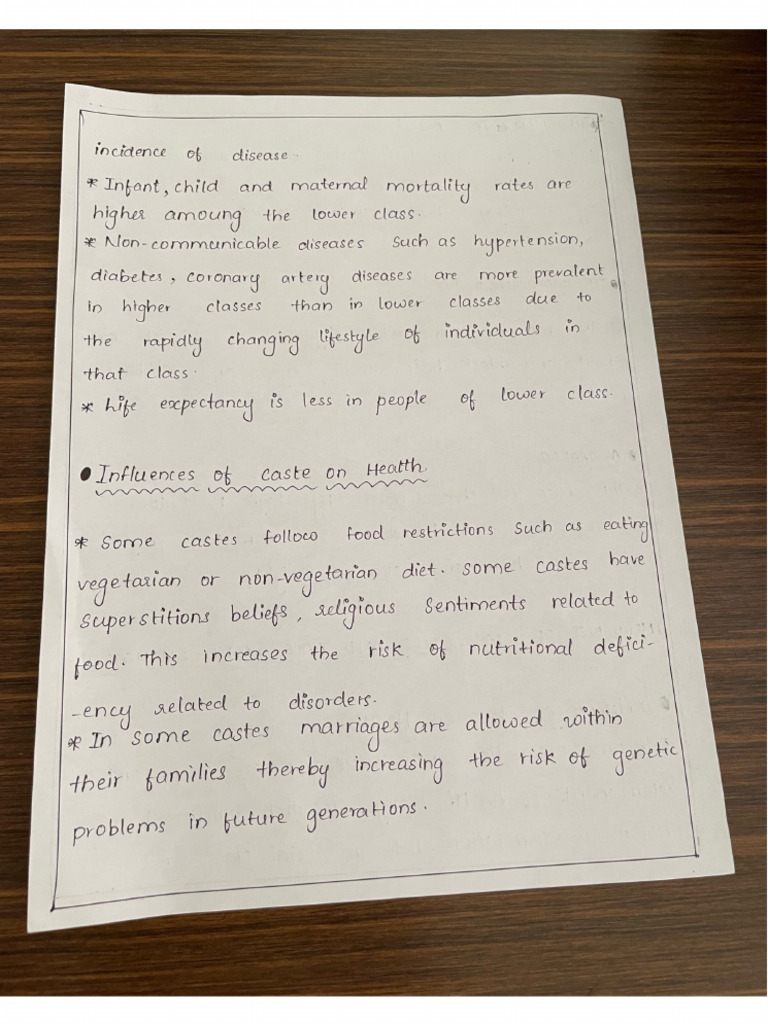 incidence of disease.
* Infant, child and maternal mortality rates are
higher amoung the lower class.
* Non-communicable diseases such as hypertension,
diabetes, coronary artery diseases are more prevalent
in higher classes than in lower classes due to
the rapidly changing lifestyle of individuals in
that class.
* Life expectancy is less in people of lower class.
● Influences of caste on Health.
* Some castes follow food restrictions such as eating
vegetarian or non-vegetarian diet. Some castes have
superstitions beliefs, religious sentiments related to
food. This increases the risk of nutritional defici-
-ency related to disorders.
* In some castes marriages are allowed within
their families thereby increasing the risk of genetic
problems in future generations.